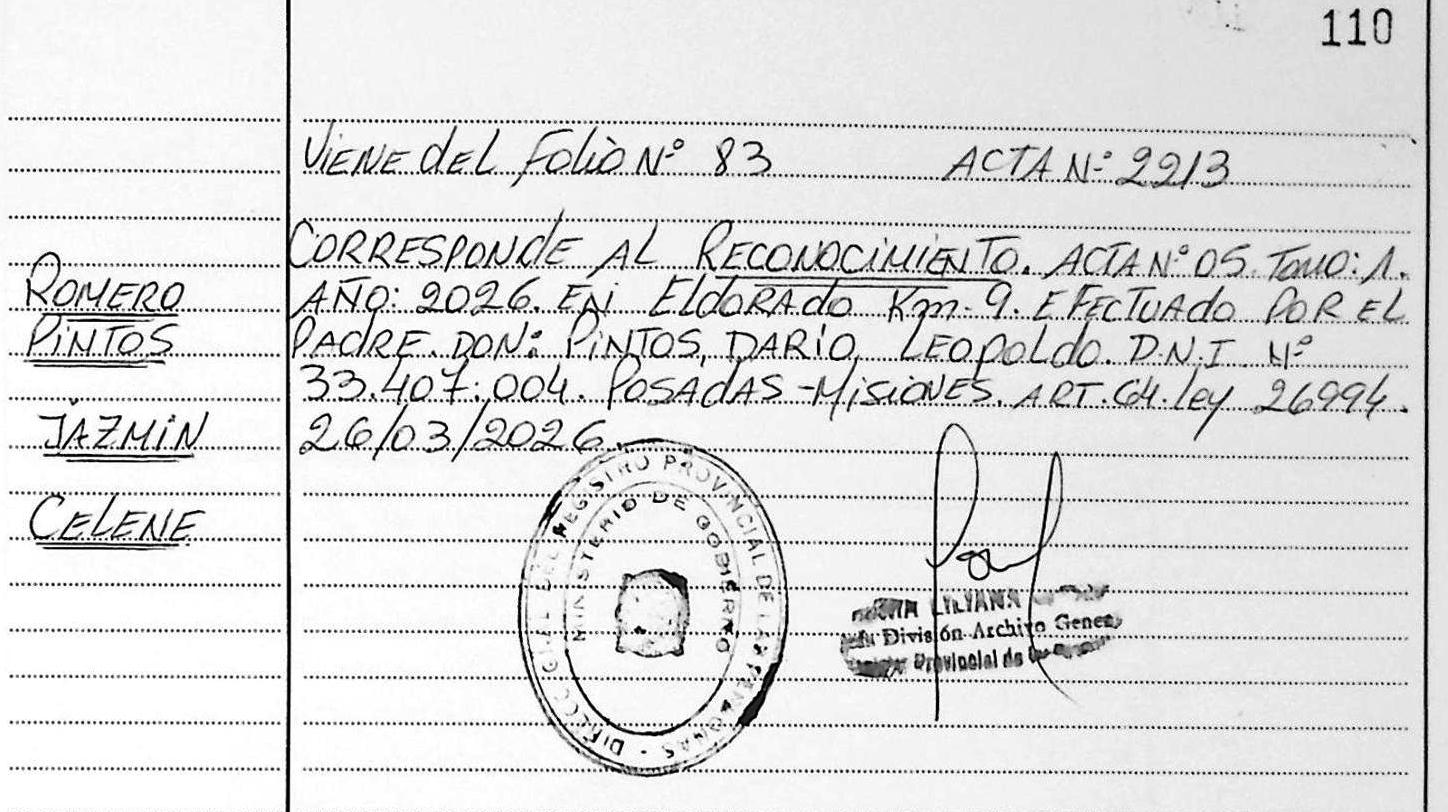 110
Viene del Folio Nº 83 ACTA Nº 2213
CORRESPONDE AL RECONOCIMIENTO. ACTA Nº 05. TOMO: 1.
AÑO: 2026. EN ELdORAdo Km. 9. EFECTUAdo POR EL
PADRE. DON: PINTOS, DARÍO, LEOPOLdo. D.N.I. Nº
33.407.004. POSAdAS - MISIONES. ART. 64. Ley 26994.
26/03/2026.
ROMERO
PINTOS
JÁZMIN
CELENE
DIRECC GRAL DEL REGISTRO PROVINCIAL DE LAS PERSONAS
MINISTERIO DE GOBIERNO
LILIANA
División Archivo General
Provincial de